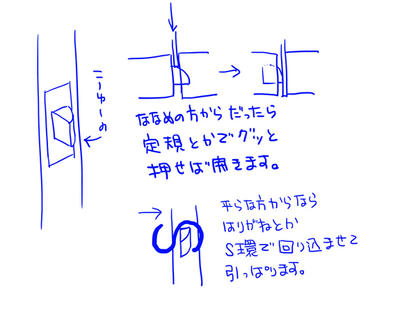 こーゆーの
ななめの方からだったら
定規とかでグッと
押せば開きます。
平らな方からなら
はりがねとか
S環で回り込ませて
引っぱります。